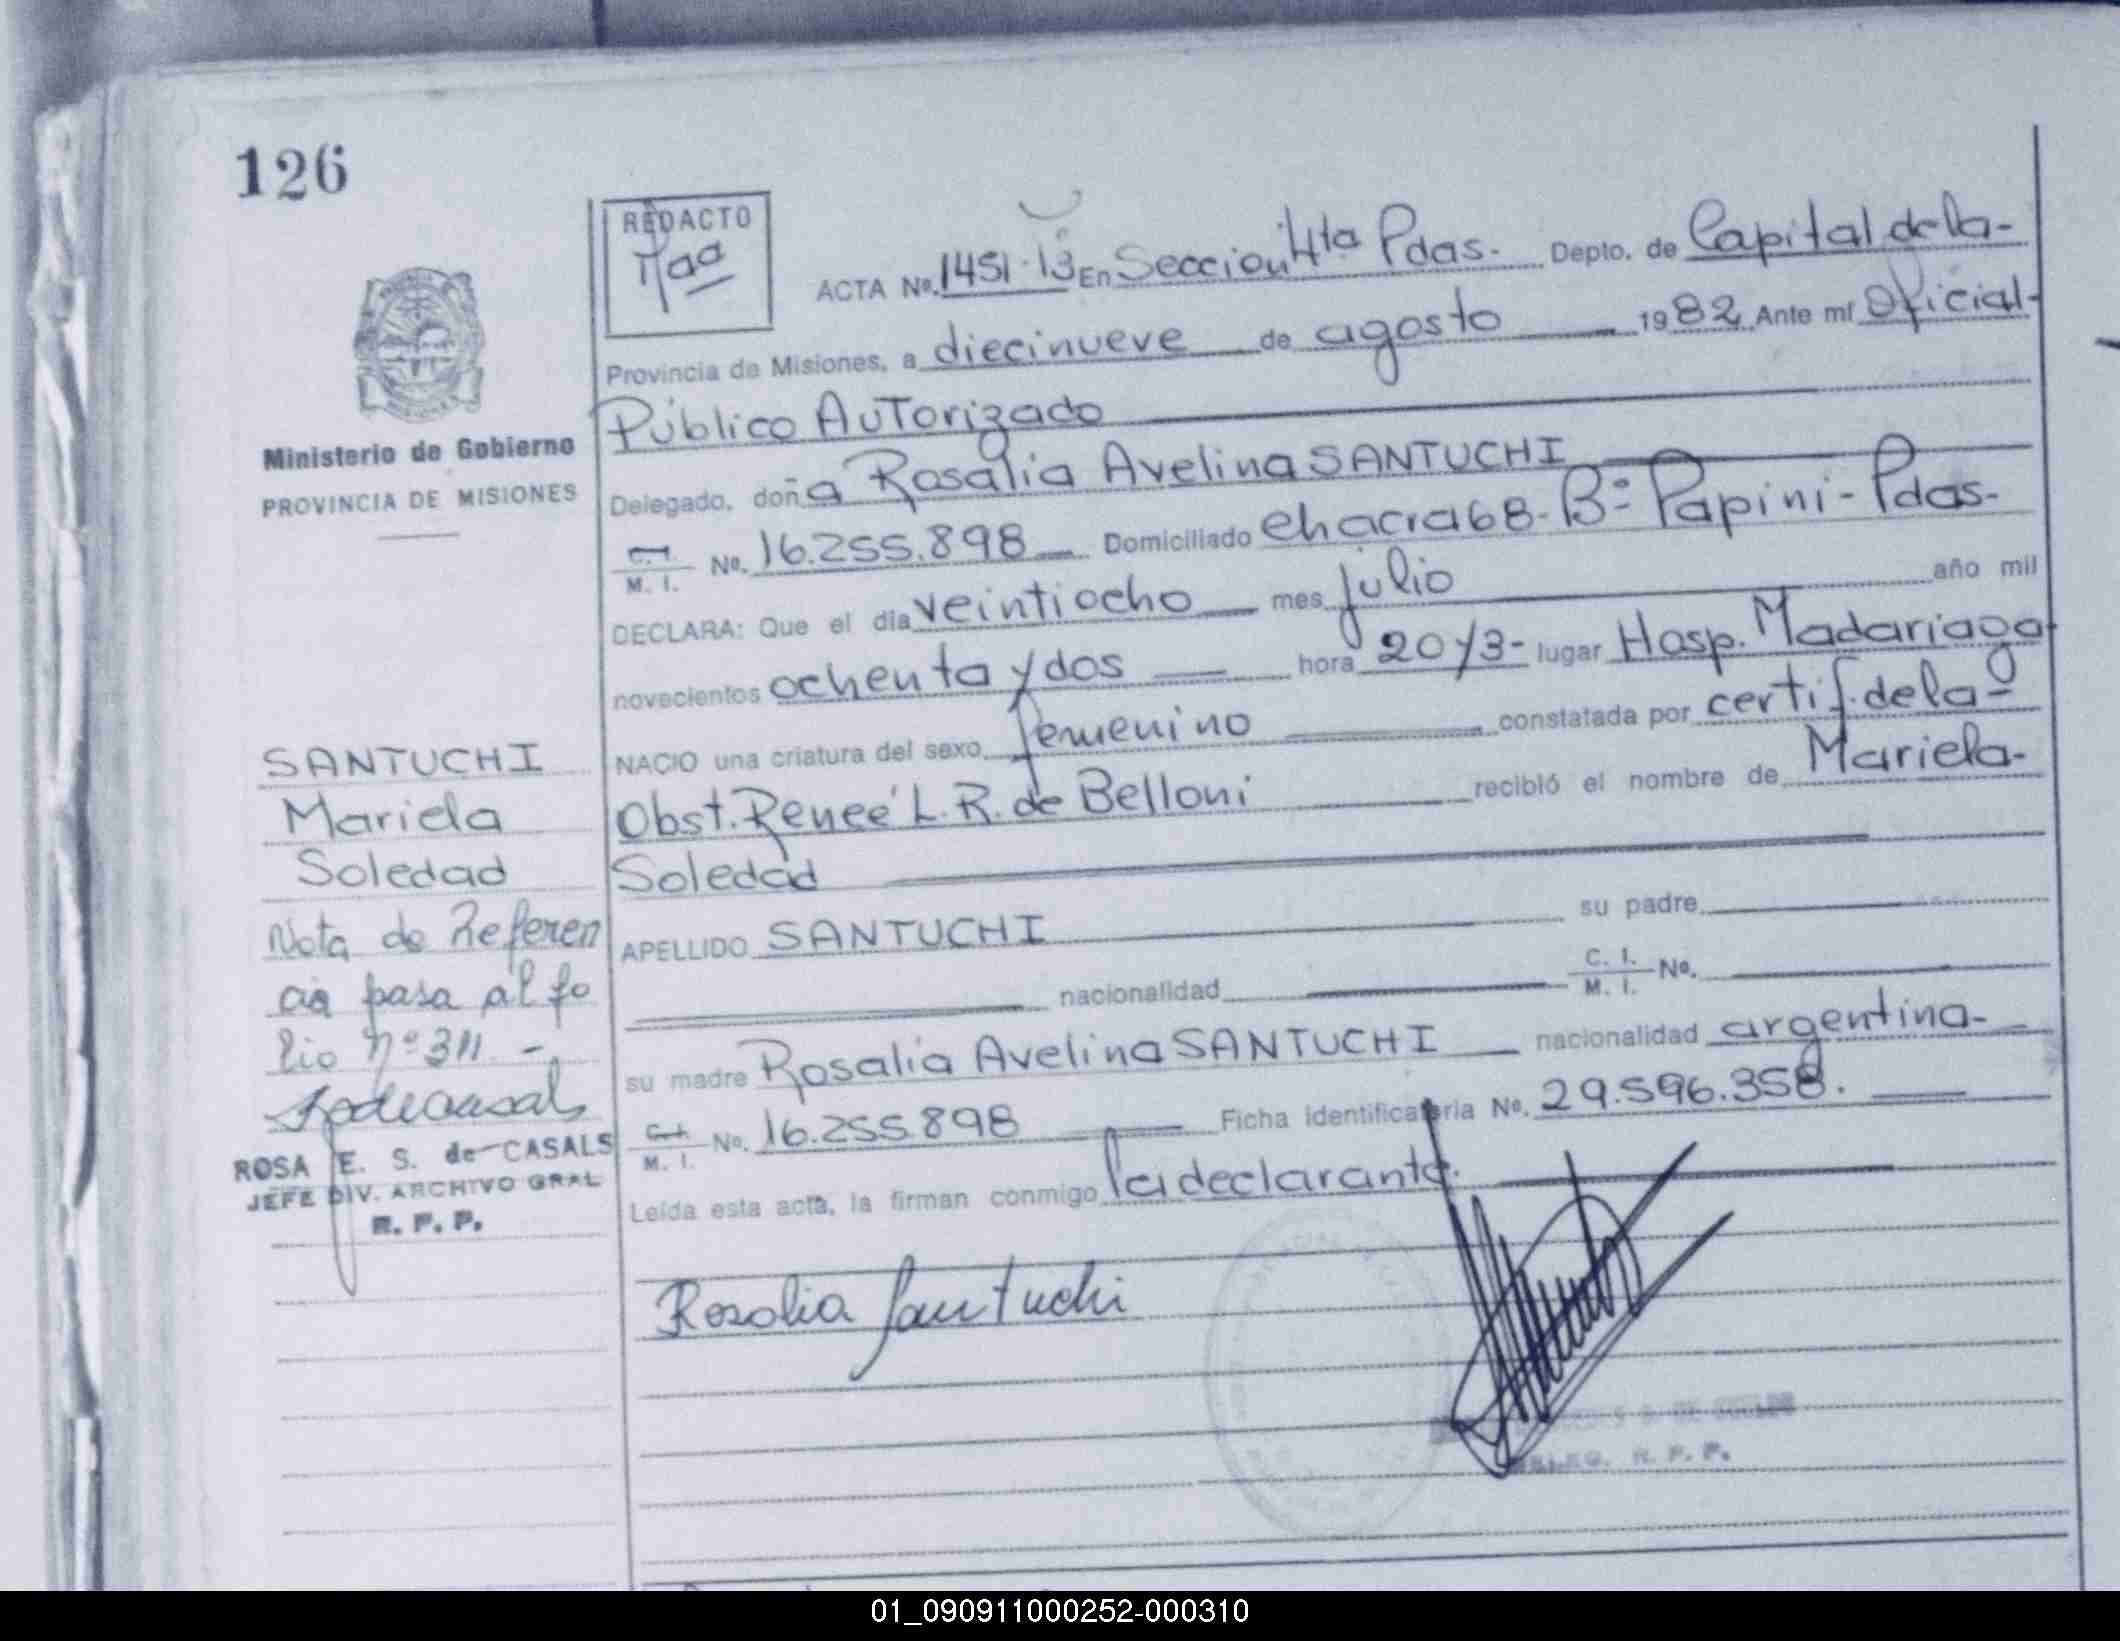 126
REDACTO
ACTA No. 1451-13 En Sección 4ta Pdas. Depto. de Capital de la-
Provincia de Misiones, a diecinueve de agosto 1982 Ante mí Oficial-
Público Autorizado
Ministerio de Gobierno
PROVINCIA DE MISIONES
Delegado, doña Rosalia Avelina SANTUCHI
C. I. / M. I. No. 16.255.898 Domiciliado chacra 68-Bº Papini-Pdas-
DECLARA: Que el día veintiocho mes julio año mil
novecientos ochenta y dos hora 20 y 3- lugar Hosp. Madariaga
NACIO una criatura del sexo femenino constatada por certif. de la-
Obst. Reneé L. R. de Belloni recibió el nombre de Mariela-
Soledad
APELLIDO SANTUCHI su padre
nacionalidad C. I. / M. I. No.
su madre Rosalia Avelina SANTUCHI nacionalidad argentina-
C. I. / M. I. No. 16.255.898 Ficha identificatoria No. 29.596.358.
Leída esta acta, la firman conmigo la declarante.
Rosalia Santuchi
DELEG. R. P. P.
SANTUCHI
Mariela
Soledad
Nota de Referen
cia pasa al fo
lio nº 311 -
ROSA E. S. de CASALS
JEFE DIV. ARCHIVO GRAL
R. P. P.
01_090911000252-000310